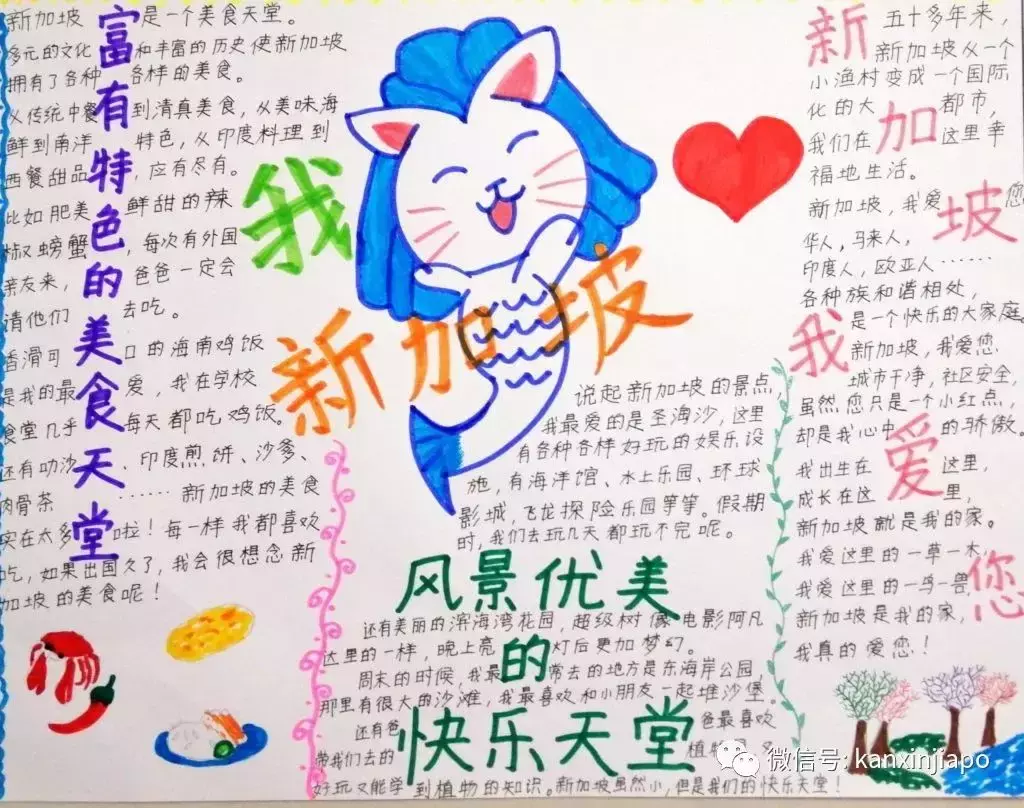 富有特色的美食天堂
新加坡是一个美食天堂。
多元的文化和丰富的历史使新加坡
拥有了各种各样的美食。
从传统中餐到清真美食,从美味海
鲜到南洋特色,从印度料理到
西餐甜品,应有尽有。
比如肥美鲜甜的辣
椒螃蟹,每次有外国
亲友来,爸爸一定会
请他们去吃。
香滑可口的海南鸡饭
是我的最爱,我在学校
食堂几乎每天都吃鸡饭。
还有叻沙、印度煎饼、沙爹、
肉骨茶……新加坡的美食
实在太多啦!每一样我都喜欢
吃,如果出国久了,我会很想念新
加坡的美食呢!
我
新加坡
说起新加坡的景点,
我最爱的是圣淘沙,这里
有各种各样好玩的娱乐设
施,有海洋馆、水上乐园、环球
影城,飞龙探险乐园等等。假期
时,我们去玩几天都玩不完呢。
风景优美
的
快乐天堂
还有美丽的滨海湾花园,超级树像电影阿凡
这里的一样,晚上亮灯后更加梦幻。
周末的时候,我最常去的地方是东海岸公园,
那里有很大的沙滩,我最喜欢和小朋友一起堆沙堡。
还有爸爸最喜欢
带我们去的植物
好玩又能学到植物的知识。新加坡虽然小,但是我们的快乐天堂!
新加坡我爱您
五十多年来,
新加坡从一个
小渔村变成一个国际
化的大都市,
我们在这里幸
福地生活。
新加坡,我爱您
华人,马来人,
印度人,欧亚人……
各种族和谐相处,
是一个快乐的大家庭。
新加坡,我爱您
城市干净,社区安全,
虽然您只是一个小红点,
却是我心中的骄傲。
我出生在这里,
成长在这里,
新加坡就是我的家。
我爱这里的一草一木,
我爱这里的一鸟一兽,
新加坡是我的家,
我真的爱您!
微信号: kanxinjiapo